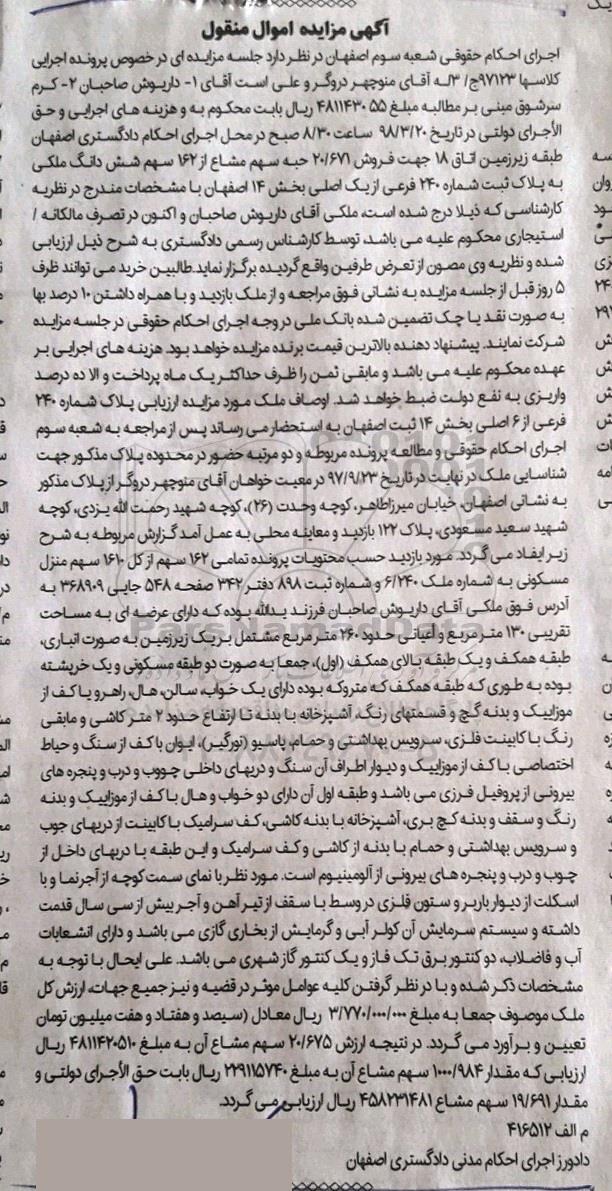 آگهی مزایده اموال منقول
اجرای احکام حقوقی شعبه سوم اصفهان در نظر دارد جلسه مزایده ای در خصوص پرونده اجرایی
کلاسها ۹۷۱۲۳ج/ ۳له آقای منوچهر دروگر و علی است آقای ۱- داریوش صاحبان ۲- کرم
سرشوق مبنی بر مطالبه مبلغ ۴۸۱۱۴۳۰۵۵ ریال بابت محکوم به و هزینه های اجرایی و حق
الأجرای دولتی در تاریخ ۹۸/۳/۲۰ ساعت ۸/۳۰ صبح در محل اجرای احکام دادگستری اصفهان
طبقه زیرزمین اتاق ۱۸ جهت فروش ۲۰/۶۷۱ حبه سهم مشاع از ۱۶۲ سهم شش دانگ ملکی
به پلاک ثبت شماره ۲۴۰ فرعی از یک اصلی بخش ۱۴ اصفهان با مشخصات مندرج در نظریه
کارشناسی که ذیلا درج شده است، ملکی آقای داریوش صاحبان و اکنون در تصرف مالکانه /
استیجاری محکوم علیه می باشد، توسط کارشناس رسمی دادگستری به شرح ذیل ارزیابی
شده و نظریه وی مصون از تعرض طرفین واقع گردیده برگزار نماید.طالبین خرید می توانند ظرف
۵ روز قبل از جلسه مزایده به نشانی فوق مراجعه و از ملک بازدید و با همراه داشتن ۱۰ درصد بها
به صورت نقد یا چک تضمین شده بانک ملی در وجه اجرای احکام حقوقی در جلسه مزایده
شرکت نمایند. پیشنهاد دهنده بالاترین قیمت برنده مزایده خواهد بود. هزینه های اجرایی بر
عهده محکوم علیه می باشد و مابقی ثمن را ظرف حداکثر یک ماه پرداخت و الا ده درصد
واریزی به نفع دولت ضبط خواهد شد. اوصاف ملک مورد مزایده ارزیابی پلاک شماره ۲۴۰
فرعی از ۶ اصلی بخش ۱۴ ثبت اصفهان به استحضار می رساند پس از مراجعه به شعبه سوم
اجرای احکام حقوقی و مطالعه پرونده مربوطه و دو مرتبه حضور در محدوده پلاک مذکور جهت
شناسایی ملک در نهایت در تاریخ ۹۷/۹/۲۳ در معیت خواهان آقای منوچهر دروگر از پلاک مذکور
به نشانی اصفهان، خیابان میرزاطاهر، کوچه وحدت (۲۶)، کوچه شهید رحمت الله یزدی، کوچه
شهید سعید مسعودی، پلاک ۱۲۲ بازدید و معاینه محلی به عمل آمد گزارش مربوطه به شرح
زیر ایفاد می گردد. مورد بازدید حسب محتویات پرونده تمامی ۱۶۲ سهم از کل ۱۶۱۰ سهم منزل
مسکونی به شماره ملک ۶/۲۴۰ و شماره ثبت ۸۹۸ دفتر ۳۴۲ صفحه ۵۴۸ جایی ۳۶۸۹۰۹ به
آدرس فوق ملکی آقای داریوش صاحبان فرزند یدالله بوده که دارای عرضه ای به مساحت
تقریبی ۱۳۰ متر مربع و أعیانی حدود ۲۶۰ متر مربع مشتمل بر یک زیرزمین به صورت انباری،
طبقه همکف و یک طبقه بالای همکف (اول)، جمعا به صورت دو طبقه مسکونی و یک خرپشته
بوده به طوری که طبقه همکف که متروکه بوده دارای یک خواب، سالن، هال، راهرو یا کف از
موزاییک و بدنه گچ و قسمتهای رنگ، آشپزخانه با بدنه تا ارتفاع حدود ۲ متر کاشی و مابقی
رنگ با کابینت فلزی، سرویس بهداشتی و حمام، پاسیو (نورگیر)، ایوان با کف از سنگ و حیاط
اختصاصی با کف از موزاییک و دیوار اطراف آن سنگ و دربهای داخلی چووب و درب و پنجره های
بیرونی از پروفیل فرزی می باشد و طبقه اول آن دارای دو خواب و هال با کف از موزاییک و بدنه
رنگ و سقف و بدنه کچ بری، آشپزخانه با بدنه کاشی، کف سرامیک با کابینت از دربهای جوب
و سرویس بهداشتی و حمام با بدنه از کاشی و کف سرامیک و این طبقه با دربهای داخل از
چوب و درب و پنجره های بیرونی از آلومینیوم است. مورد نظر با نمای سمت کوچه از آجرنما و با
اسکلت از دیوار باربر و ستون فلزی در وسط با سقف از تیرآهن و آجر بیش از سی سال قدمت
داشته و سیستم سرمایش آن کولر آبی و گرمایش از بخاری گازی می باشد و دارای انشعابات
آب و فاضلاب، دو کنتور برق تک فاز و یک کنتور گاز شهری می باشد. علی ایحال با توجه به
مشخصات ذکر شده و با در نظر گرفتن کلیه عوامل موثر در قضیه و نیز جمیع جهات، ارزش کل
ملک موصوف جمعا به مبلغ ۳/۷۷۰/۰۰۰/۰۰۰ ریال معادل (سیصد و هفتاد و هفت میلیون تومان
تعیین و برآورد می گردد. در نتیجه ارزش ۲۰/۶۷۵ سهم مشاع آن به مبلغ ۴۸۱۱۴۲۰۵۱۰ ریال
ارزیابی که مقدار ۱۰۰۰/۹۸۴ سهم مشاع آن به مبلغ ۲۲۹۱۱۵۷۴۰ ریال بابت حق الأجرای دولتی و
مقدار ۱۹/۶۹۱ سهم مشاع ۴۵۸۲۳۱۴۸۱ ریال ارزیابی می گردد.
م الف ۴۱۶۵۱۲
دادورز اجرای احکام مدنی دادگستری اصفهان
ParsNamadData